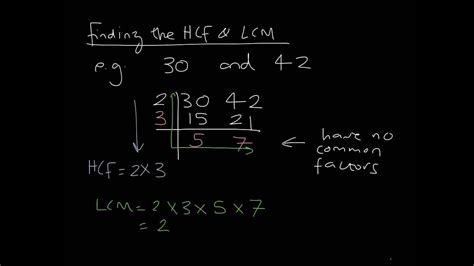 Finding the HCF & LCM
e.g. 30 and 42
2 30 42
3 15 21
5 7 ← have no common factors
HCF = 2×3
LCM = 2×3×5×7
= 2